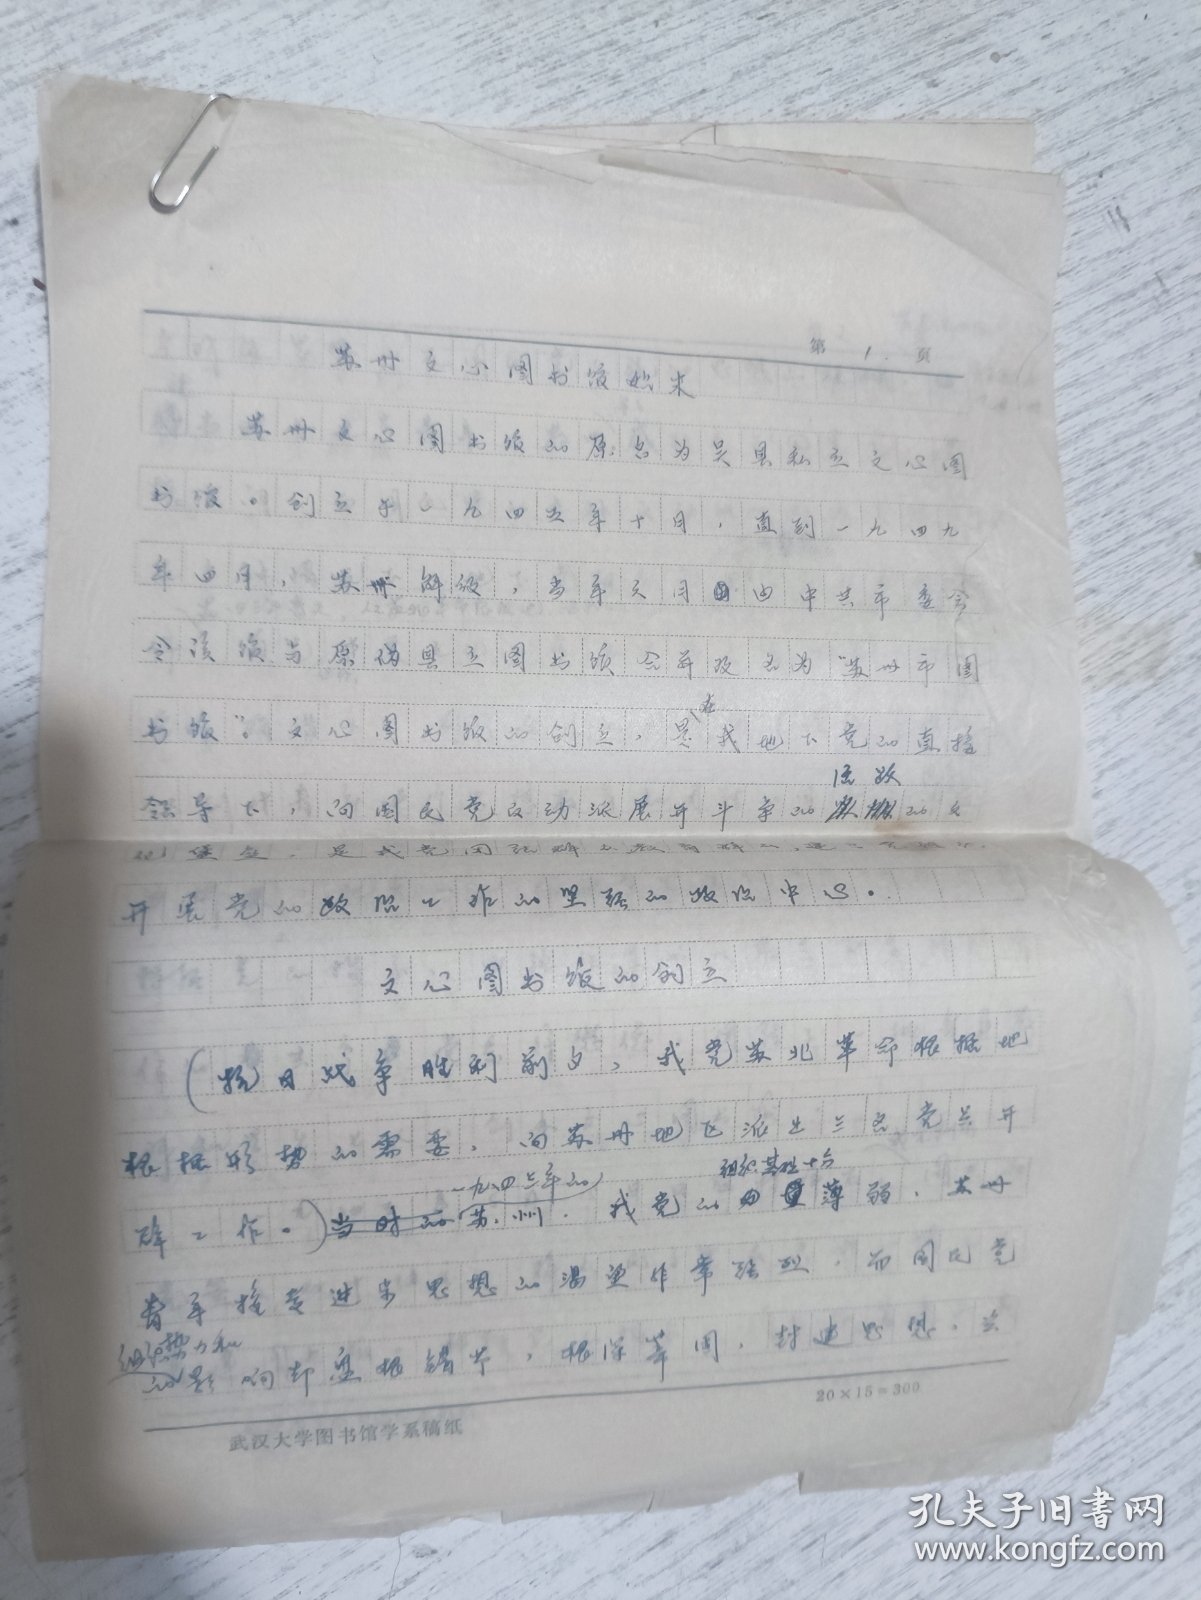 第 1. 页
苏州文心图书馆始末
苏州文心图书馆的原名为吴县私立文心图
书馆。创立于一九四五年十月,直到一九四九
年四月,苏州解放,当年六月由中共市委会
令该馆与原伪县立图书馆合并改名为“苏州市图
书馆”。文心图书馆的创立,是在我地下党的直接
活跃
领导下,向国民党反动派展开斗争的的文
化堡垒,是我党团结群众教育群众,
开展党的政治工作的坚强的政治中心。
文心图书馆的创立
(抗日战争胜利前夕,我党苏北革命根据地
根据形势的需要,向苏州地区派出三名党员开
一九四三年的 组织基础十分
辟工作。)当时的苏州.我党的薄弱,苏州
青年接受进步思想的渴望非常强烈,而国民党
组织势力和
的影响却盘根错节,根深蒂固,封建思想,
武汉大学图书馆学系稿纸
20×15=300
孔夫子旧书网
www.kongfz.com